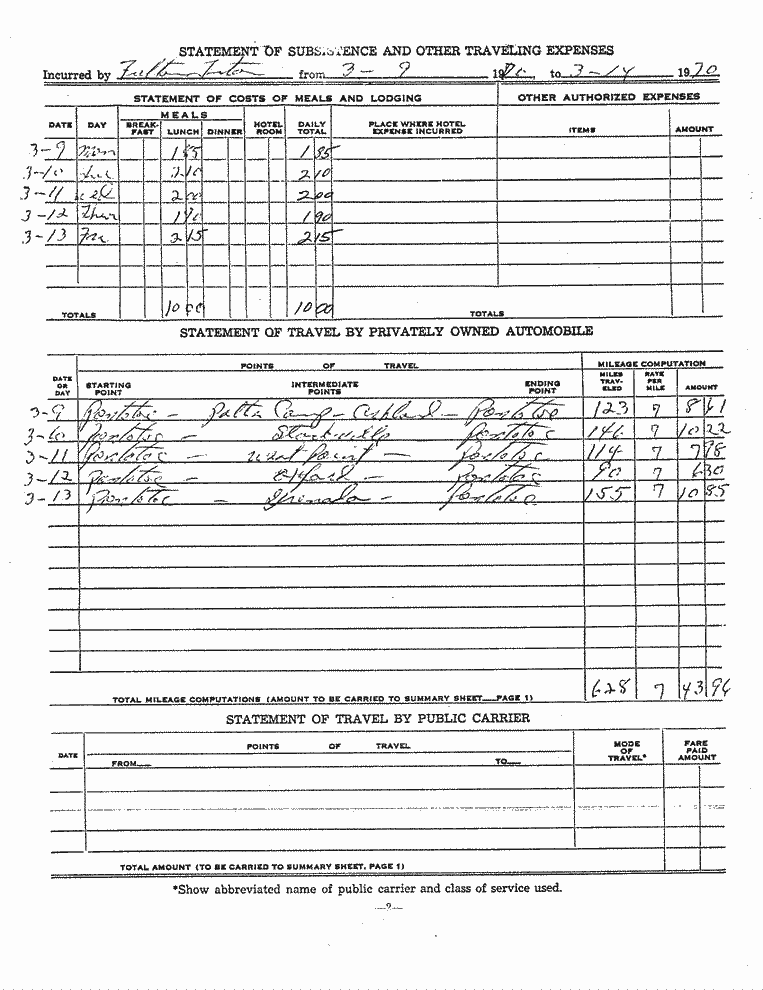 STATEMENT OF SUBSISTENCE AND OTHER TRAVELING EXPENSES
Incurred by Fulton from 3 - 9 1970, to 3-14 1970
STATEMENT OF COSTS OF MEALS AND LODGING OTHER AUTHORIZED EXPENSES
MEALS
DATE DAY BREAK-FAST LUNCH DINNER HOTEL ROOM DAILY TOTAL PLACE WHERE HOTEL EXPENSE INCURRED ITEMS AMOUNT
3-9 Mon 1 85 1 85
3-10 Tue 2 10 2 10
3-11 Wed 2 00 2 00
3-12 Thur 1 90 1 90
3-13 Fri 2 15 2 15
TOTALS 10 00 10 00 TOTALS
STATEMENT OF TRAVEL BY PRIVATELY OWNED AUTOMOBILE
POINTS OF TRAVEL MILEAGE COMPUTATION
DATE OR DAY STARTING POINT INTERMEDIATE POINTS ENDING POINT MILES TRAV-ELED RATE PER MILE AMOUNT
3-9 Pontotoc - Camp - Ashland - Pontotoc 123 7 8 61
3-10 Pontotoc - Starkville Pontotoc 146 7 10 22
3-11 Pontotoc - West Point - Pontotoc 114 7 7 98
3-12 Pontotoc - Oxford - Pontotoc 90 7 6 30
3-13 Pontotoc - Grenada - Pontotoc 155 7 10 85
TOTAL MILEAGE COMPUTATIONS (AMOUNT TO BE CARRIED TO SUMMARY SHEET—PAGE 1) 628 7 43 96
STATEMENT OF TRAVEL BY PUBLIC CARRIER
DATE POINTS OF TRAVEL MODE OF TRAVEL* FARE PAID AMOUNT
FROM— TO—
TOTAL AMOUNT (TO BE CARRIED TO SUMMARY SHEET, PAGE 1)
*Show abbreviated name of public carrier and class of service used.
—2—